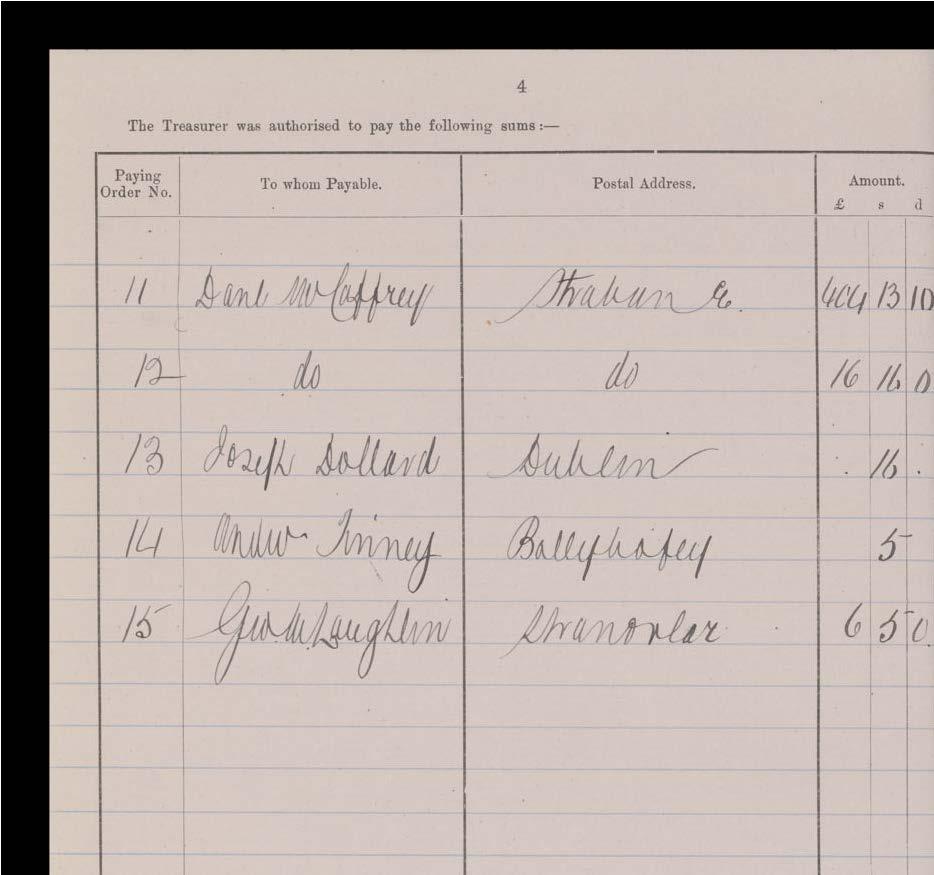 4
The Treasurer was authorised to pay the following sums :—
Paying Order No. To whom Payable. Postal Address. Amount.
£ s d
11 Danl McCaffrey Strabane 404 13 10
12 do do 16 16 0
13 Joseph Dollard Dublin . 16 .
14 Andw Finney Ballybofey 5
15 Geo McLaughlin Stranorlar 6 5 0